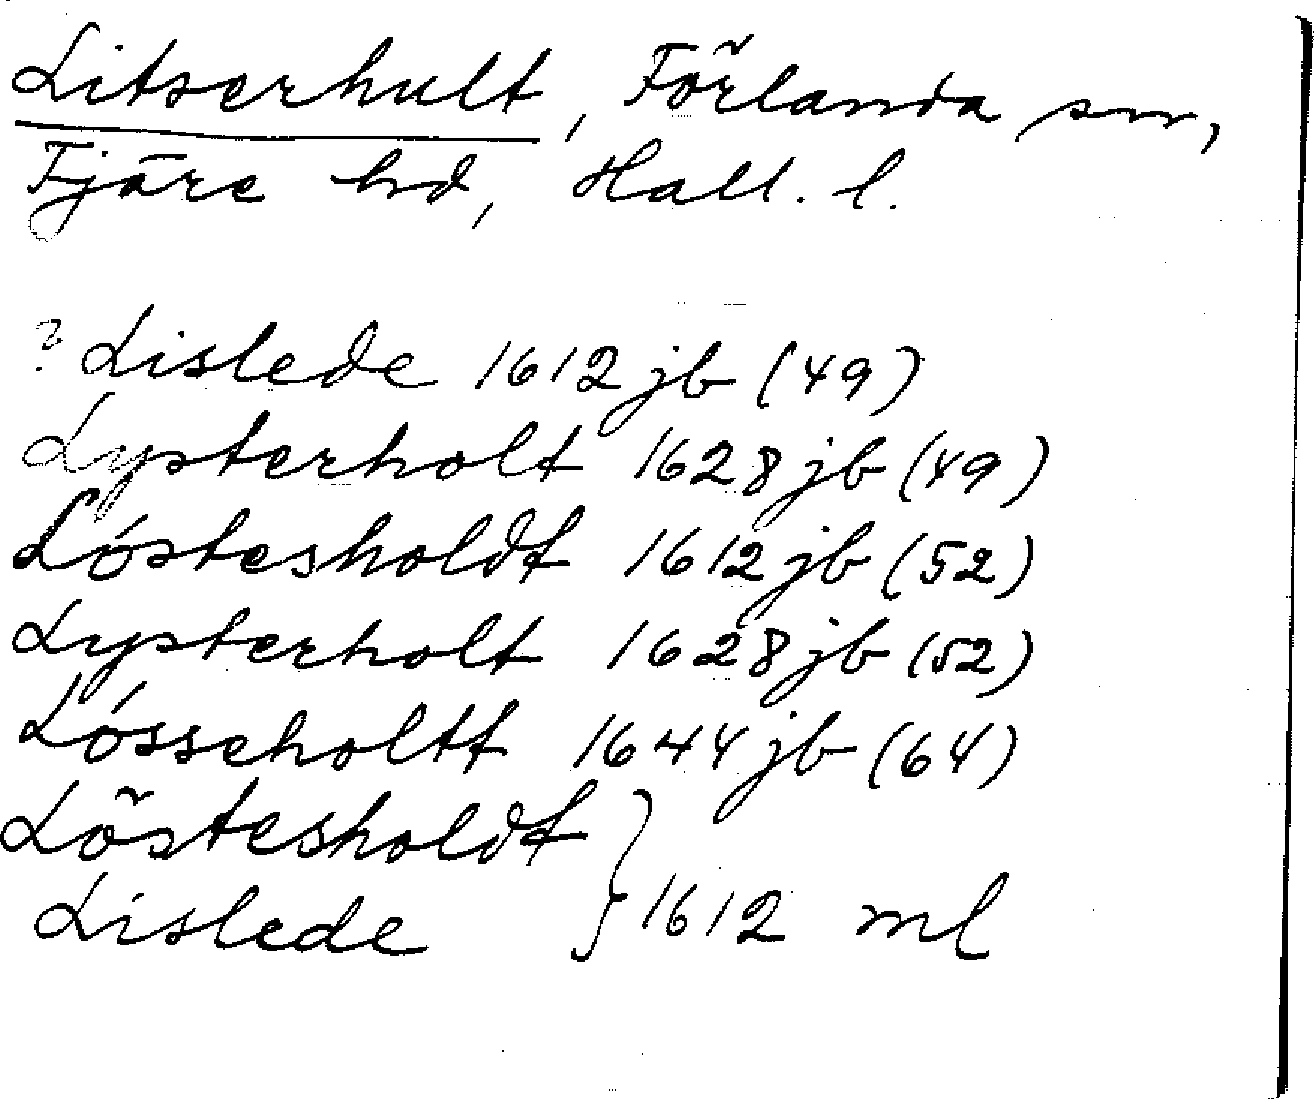 Litserhult, Förlanda sn,
Fjäre hd, Hall. l.
? Lislede 1612 jb (49)
Lysterholt 1628 jb (49)
Lóstesholdt 1612 jb (52)
Lysterholt 1628 jb (52)
Lósseholtt 1644 jb (64)
Löstesholdt
Lislede } 1612 ml